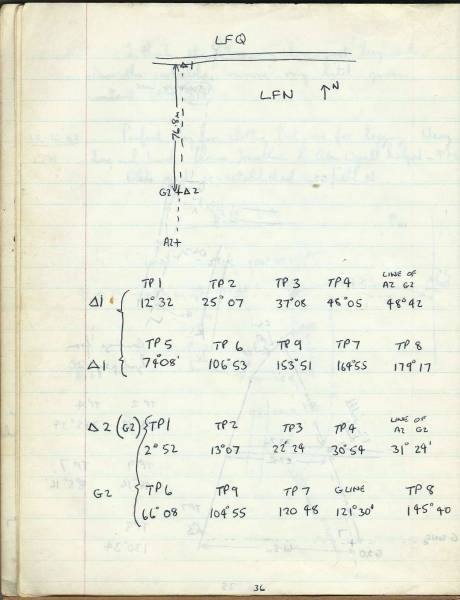 LFQ
Δ1
LFN ↑N
76.8m
G2 + Δ2
A2+
TP1 TP2 TP3 TP4 LINE OF A2 G2
Δ1 12°32 25°07 37°08 48°05 48°42
TP5 TP6 TP9 TP7 TP8
Δ1 74°08' 106°53 153°51 169°55 179°17
Δ2 (G2) TP1 TP2 TP3 TP4 LINE OF A2 G2
2°52 13°07 22°29 30°54 31°29'
G2 TP6 TP9 TP7 GLINE TP8
66°08 104°55 120 48 121°30' 145°40
36